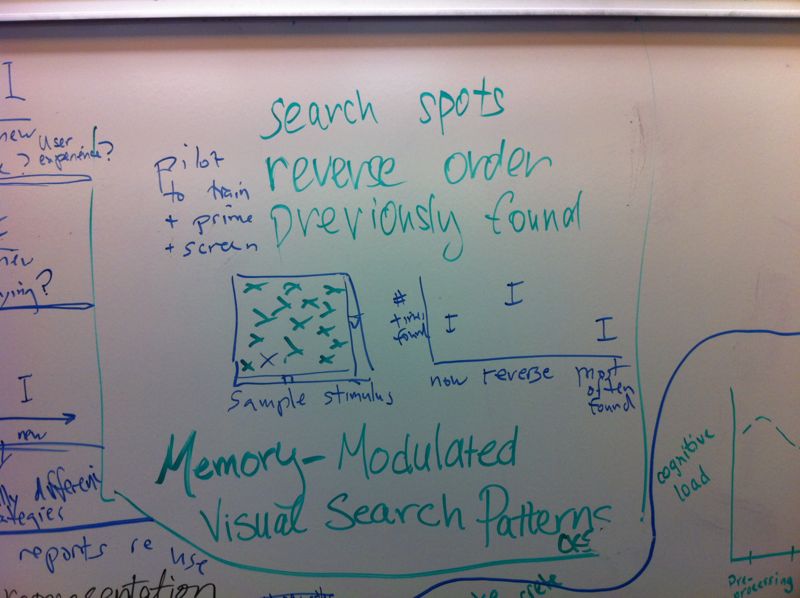 search spots
reverse order
previously found
pilot
to train
+ prime
+ screen
I
new
User
? experience?
new
ying?
I
new
different
strategies
reports re use
Sample stimulus
#
times
found
I I I
now reverse most
often
found
Memory-Modulated
Visual Search Patterns
cognitive
load
Pre-
processing